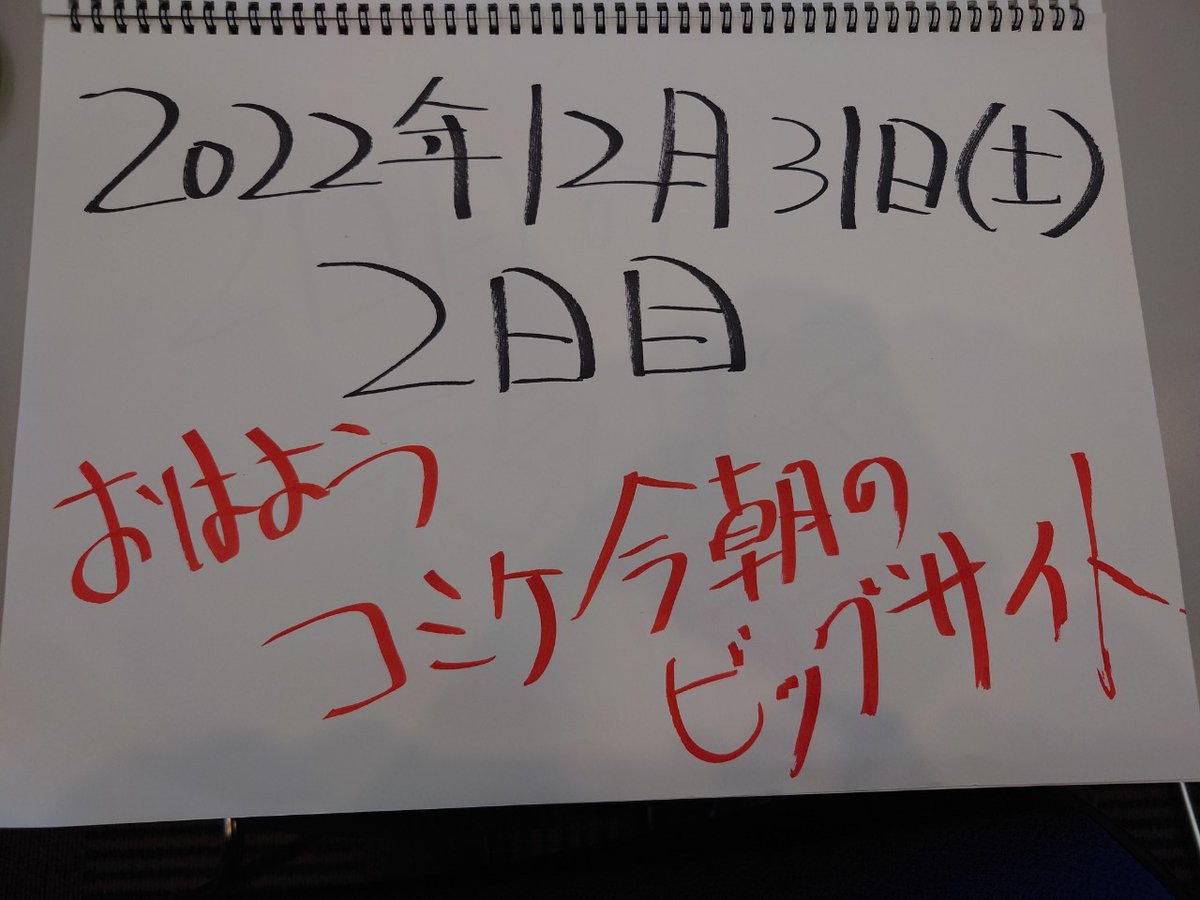 2022年12月31日(土)
2日目
おはよう
コミケ今朝の
ビッグサイト